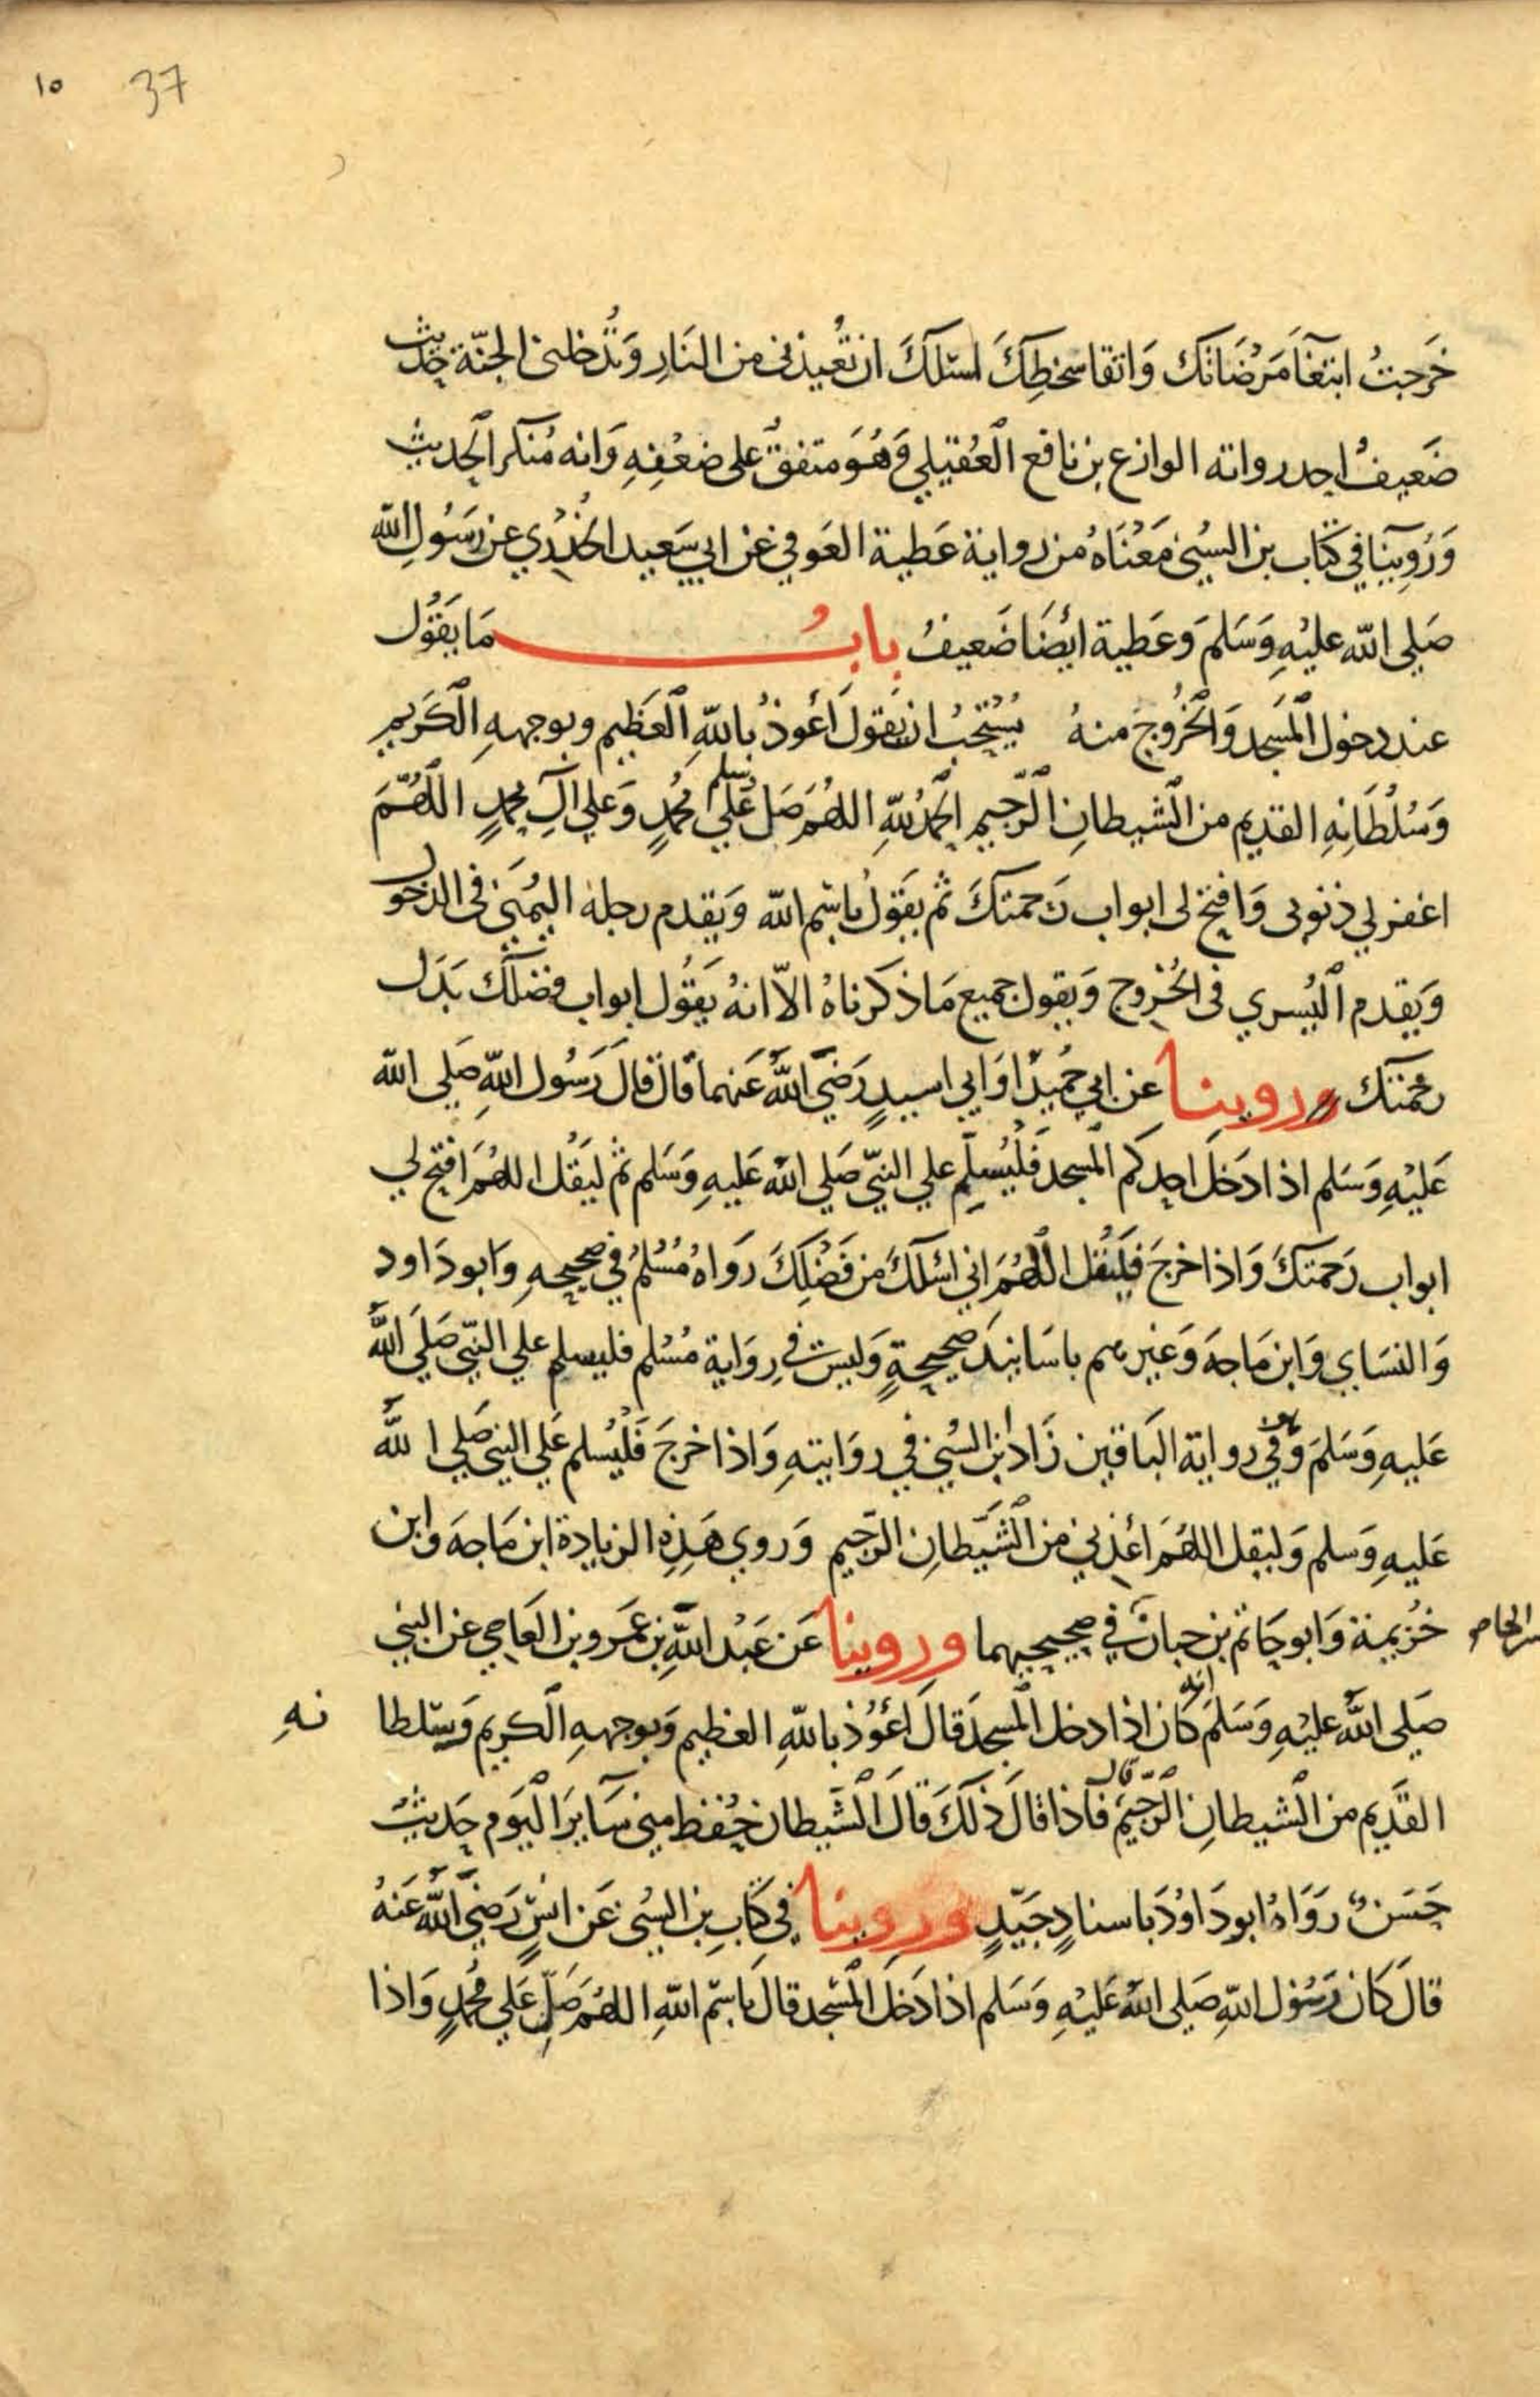 ١٥ 37
خَرَجتُ ابتغآ مَرْضَاتك وَاتقا سخطِكَ اسئلكَ ان تُعيذنى من النَارِ وَتُدخلنى الجنّة حَديث
ضَعيفٌ احد رواته الوازع بن نافع العُقيلي وَهُوَ متفقٌ على ضعْفِهِ وَانه مُنكر الحديث
وَرُوِينَا في كتَاب بن السُني مَعْنَاهُ من رواية عَطية العَوفي عَن ابي سَعيد الخُدْري عن رَسُولِ الله
صَلي الله عليْهِ وَسَلمَ وَعَطية ايضًا ضَعيفُ بابُ مَا يَقوُل
عند دخول المَسجد وَالخُرُوج منهُ يُسْتَحَبُ ان يَقولَ أَعُوذُ باللهِ العَظيمِ وبوجههِ الكَريمِ
وَسُلْطَانِهِ القديم من الشيطانِ الرّجيم الحَمدُ للهِ اللهُمَ صَل وسلم عَلي مُحمدٍ وَعلي آلِ محمدٍ اللهُمَّ
اغفر لي ذنوبى وَافتح لى ابواب رَحمتكَ ثم يَقوُل باسْم الله وَيقدم رجله اليُمنَى فى الدخول
وَيقدم اليُسري فى الخُرُوج وَيقول جميع مَا ذكَرناهُ الاّ انهُ يَقوُل ابواب فضلك بَدَل
رحمتك وروينا عن ابي حُمَيدٍ اوَ ابي اسيدٍ رَضَي اللهُ عَنهما قالَ قالَ رَسُول اللهِ صَلي الله
عَليْهِ وَسَلم اذا دَخلَ احدكم المسجد فَلْيُسلِّم علي النبيّ صَلي اللهُ عَليهِ وَسَلم ثم ليَقُل اللهُمَ افتح لي
ابواب رَحمَتكَ وَاذا خرجَ فَليَقل اللهُمَ اني اسْئلكَ من فَضْلِكَ رَوَاهُ مُسْلمُ في صحيحهِ وَابو دَاود
وَالنسَاي وَابن مَاجه وَغيرهم باسَانيدَ صحيحةٍ وَليسَ في رِوَاية مُسْلم فليسلم علي النبيّ صَلَي اللهُ
عَليهِ وَسَلمَ وَهو في رواية البَاقين زَادَ ابن السُني في روَايتهِ وَاذا خرجَ فَلْيُسلم عَلي النبي صَلي الله
عَليهِ وَسَلم وَليقل اللهُمَ أعذني من الشَيَطانِ الرّجيم وَروي هَذِهِ الزيادة ابن مَاجه وَابن
خُزيمة وَابو حَاتم بن حبانَ في صحيحيهما وروينا عَن عَبْد اللهِ بن عَمَرو بن العَاصِي عن النبي
صَلي اللهُ عليْهِ وَسَلمَ انه كان اذا دخل المسجدَ قالَ أَعُوْذُ باللهِ العظيمِ وَبوجههِ الكريم وَسُلطا نهِ
القَدِيم من الشيطانِ الرّجيمِ قال فَاذا قالَ ذلكَ قالَ الشَيطان حُفظ مني سَايرَ اليَوم حَديثٌ
حَسَنٌ رَوَاهُ ابو دَاوُدَ باسنادٍ جَيّدٍ وروينا في كتَابِ بن السُني عَن انَسٍ رَضَي اللهُ عَنهُ
قالَ كَان رَسُول اللهِ صَلي اللهُ عَليْهِ وَسَلم اذا دَخلَ المَسْجد قالَ باسْم اللهِ اللهُمَ صَلِّ عَلي مُحمدٍ وَاذا